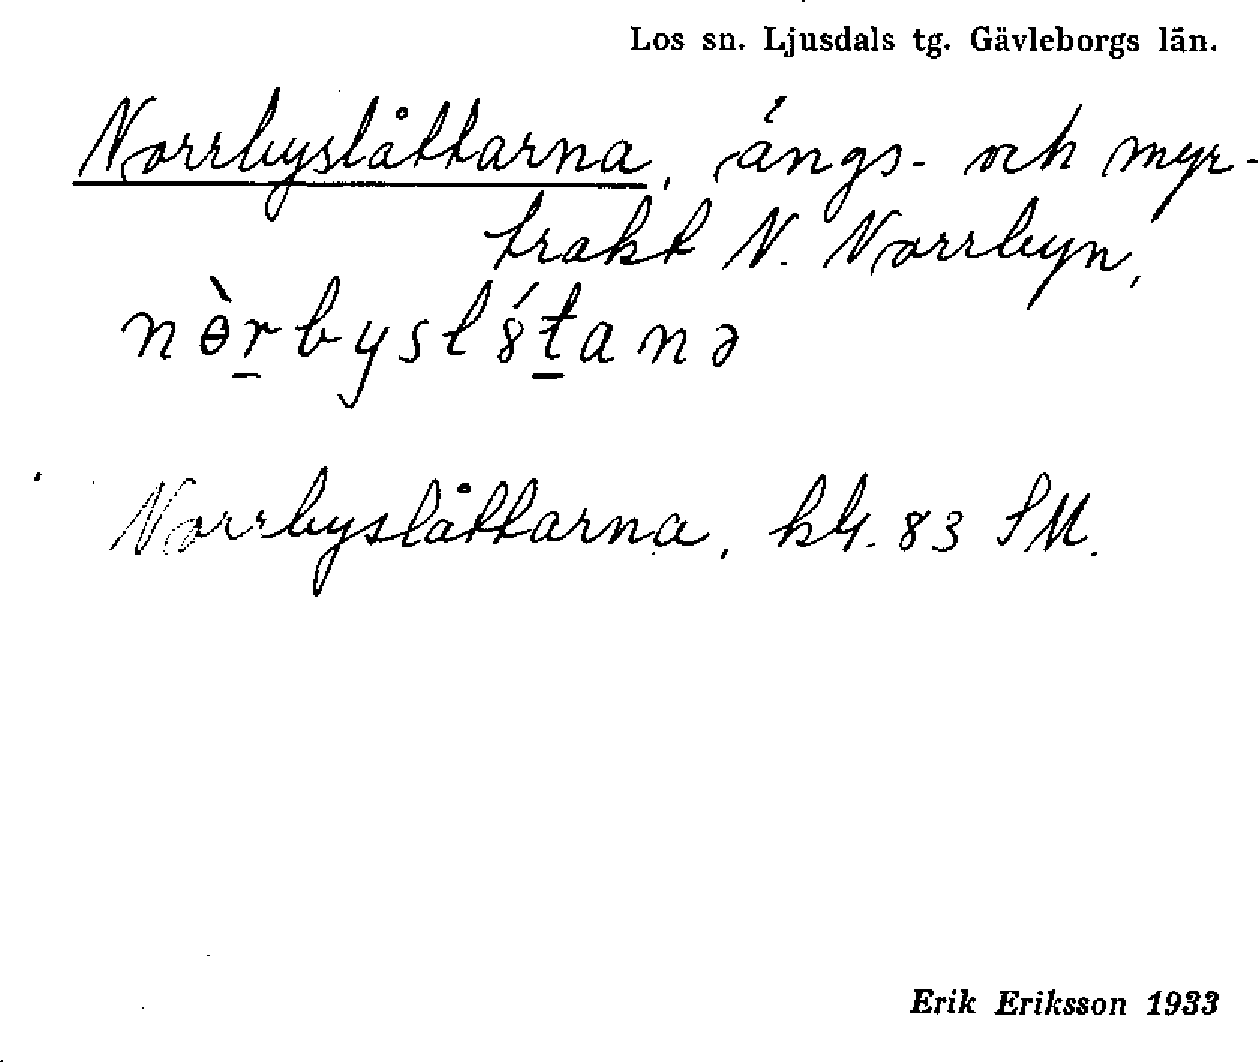 Los sn. Ljusdals tg. Gävleborgs län.
Norrbyslåttarna, ängs- och myr-
trakt N. Norrbyn,
nɵ̀r̲byslȣ́t̲anə
Norrbyslåttarna, bl. 83 SM.
Erik Eriksson 1933